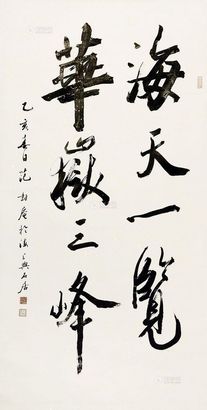 海天一覽
華嶽三峰
乙亥春日范